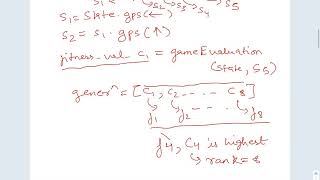 s₁ ← s₂ s₃ s₄ s₅
s₁ = State.gps(←)
s₂ = s₁.gps(↑)
fitness_val c₁ = gameEvaluation
(state, s₅)
generⁿ = [c₁, c₂ ---- c₈]
f₁ f₂ - - - f₈
f₄, c₄ is highest
↳ rank =